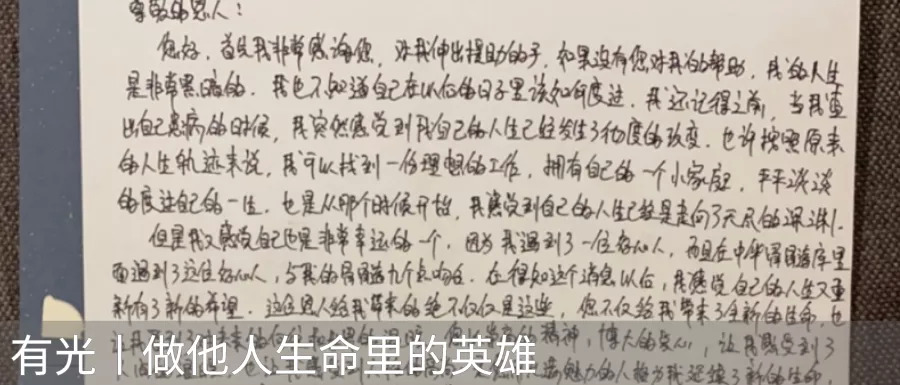 尊敬的恩人：
您好，首先我非常感谢您，对我伸出援助的手，如果没有您对我的帮助，我的人生
是非常黑暗的。我也不知道自己在以后的日子里该如何度过，我还记得之前，当我查
出自己患病的时候，我突然感觉到我自己的人生已经发生了彻底的改变。也许按照原来
的人生轨迹来说，我可以找到一份理想的工作，拥有自己的一个小家庭，平平淡淡
的度过自己的一生。也是从那个时候开始，我感觉到自己的人生已经是走向了无尽的深渊。
但是我又感觉自己也是非常幸运的一个，因为我遇到了一位好心人，而且在中华骨髓库里
面遇到了这位好心人，与我的骨髓九个点吻合。在得知这个消息以后，我感觉自己的人生又重
新有了新的希望。这位恩人给我带来的绝不仅仅是这些，您不仅给我带来了全新的生命，也
精神，博大的爱心，让我感受到了
有光丨做他人生命里的英雄